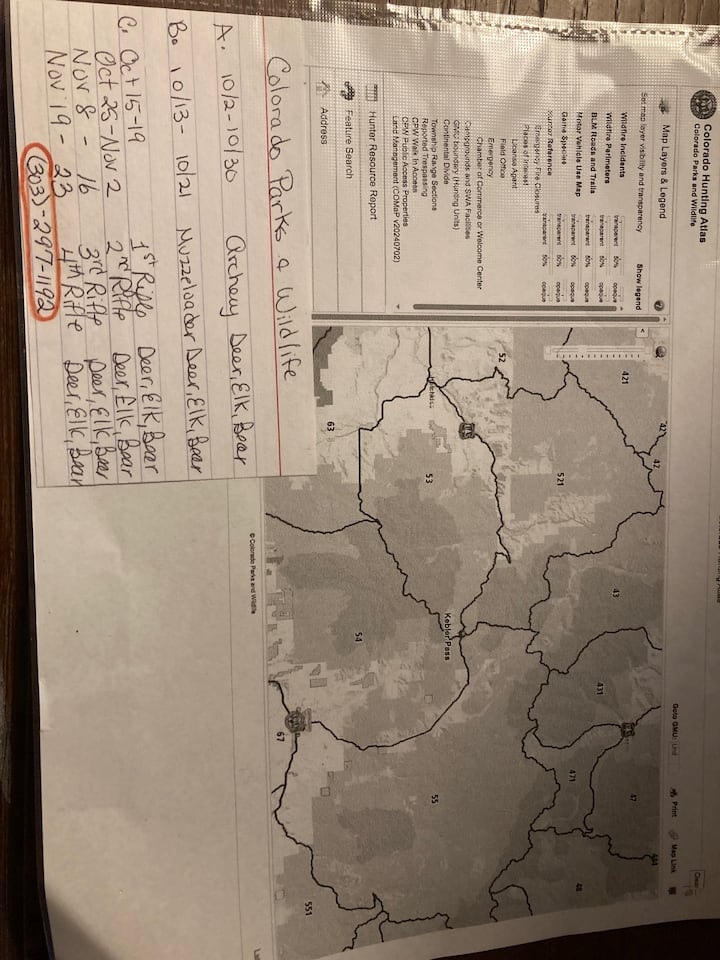 Colorado Hunting Atlas
Colorado Parks and Wildlife
Map Layers & Legend
Set map layer visibility and transparency
Show legend
Wildfire Incidents transparent 50% opaque
Wildfire Perimeters transparent 50% opaque
BLM Roads and Trails transparent 50% opaque
Motor Vehicle Use Map transparent 50% opaque
Game Species transparent 50% opaque
Hunter Reference transparent 50% opaque
Emergency Fire Closures
Places of Interest
License Agent
Field Office
Emergency
Chamber of Commerce or Welcome Center
Campgrounds and SWA Facilities
GMU boundary (Hunting Units)
Continental Divide
Township Range Sections
Reported Trespassing
CPW Walk In Access
CPW Public Access Properties
Land Management (COMaP v20240702)
Hunter Resource Report
Feature Search
Address
Goto GMU: Unit
Print
Map Link
Clear
421
42
521
43
431
47
471
444
48
52
53
Kebler Pass
63
54
55
67
551
© Colorado Parks and Wildlife
Colorado Parks & Wildlife
A. 10/2-10/30 Archery Deer, Elk, Bear
B. 10/13-10/21 Muzzeloader Deer, Elk, Bear
C. Oct 15-19 1st Rifle Deer, Elk, Bear
Oct 25-Nov 2 2nd Rifle Deer, Elk, Bear
Nov 8 - 16 3rd Rifle Deer, Elk, Bear
Nov 19 - 23 4th Rifle Deer, Elk, Bear
(303)-297-1192